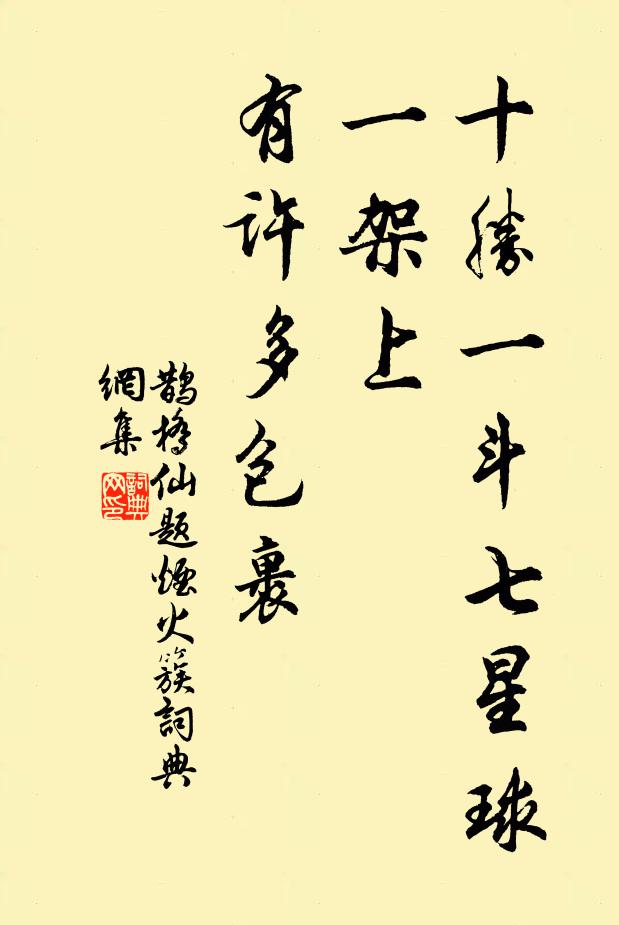 十勝一斗七星球
一架上
有許多包裹
鵲橋仙题煙火簇詞典
網集
詞典
网印